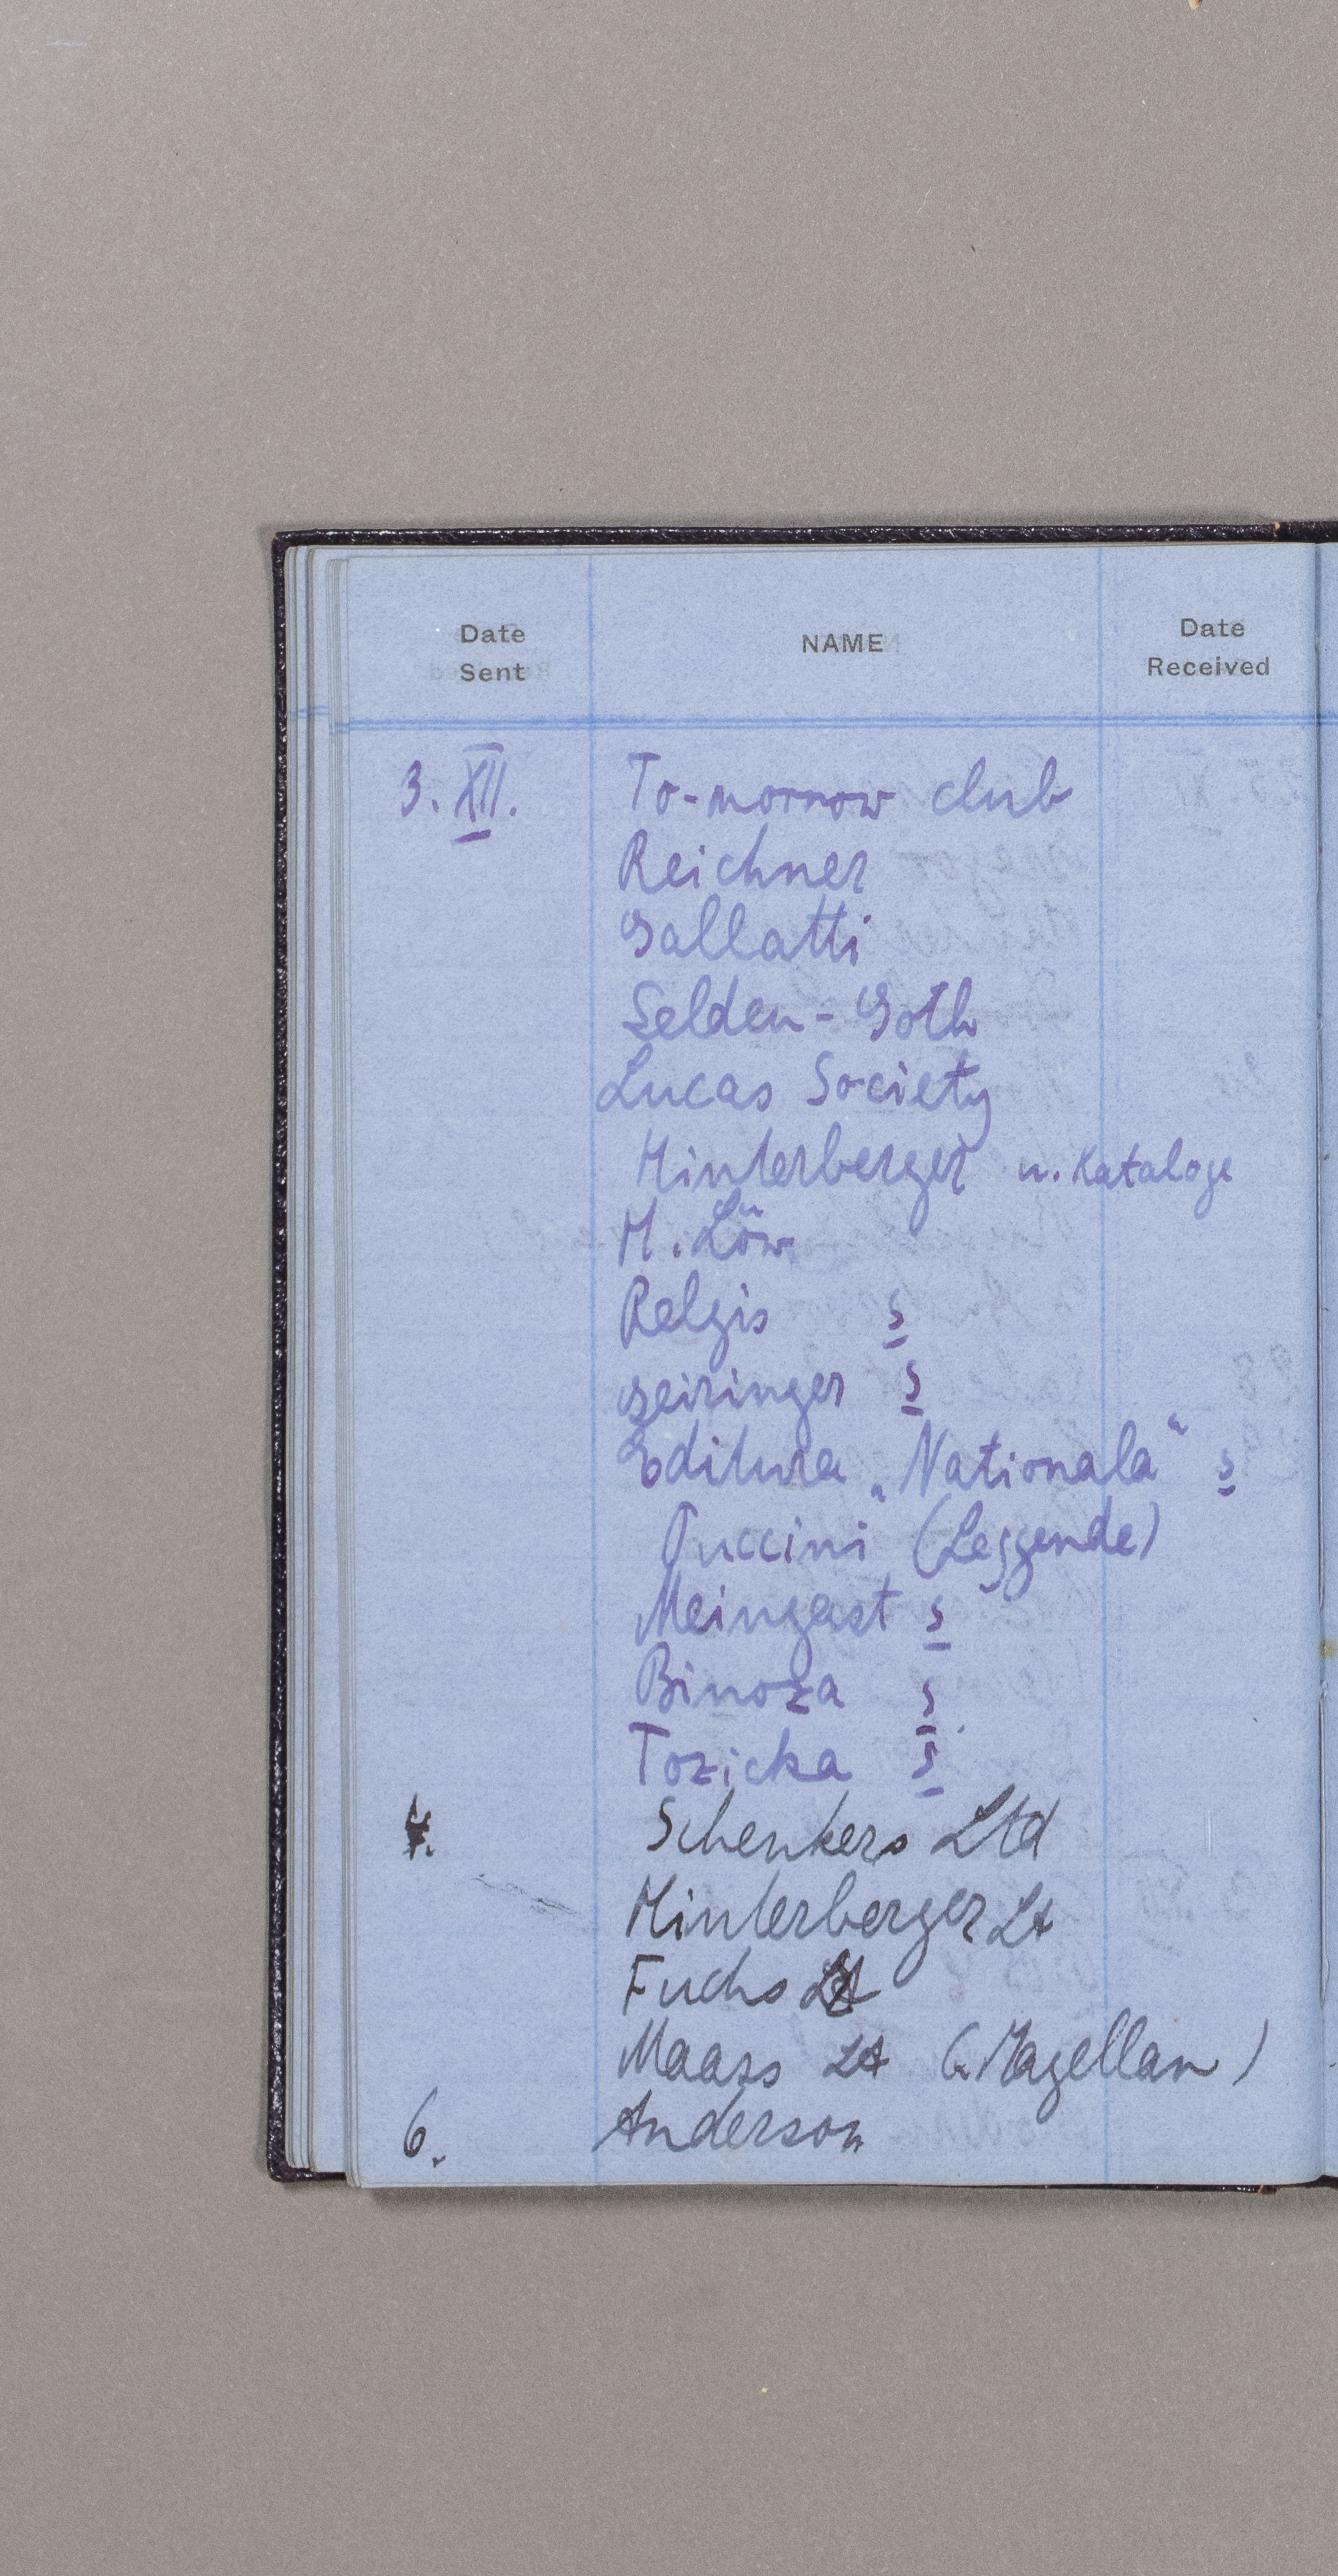 Date Sent NAME Date Received
3. XII. To-morrow club
Reichner
Gallatti
Selden-Goth
Lucas Society
Hinterberger u. Kataloge
H. Löw
Relgis s
Geiringer s
Editura „Nationala“ s
Puccini (Leggende)
Meingast s
Binoza s
Tozicka s
4. Schenkers Ltd
Hinterberger Lt
Fuchs
Maass Lt (Magellan)
6. Anderson